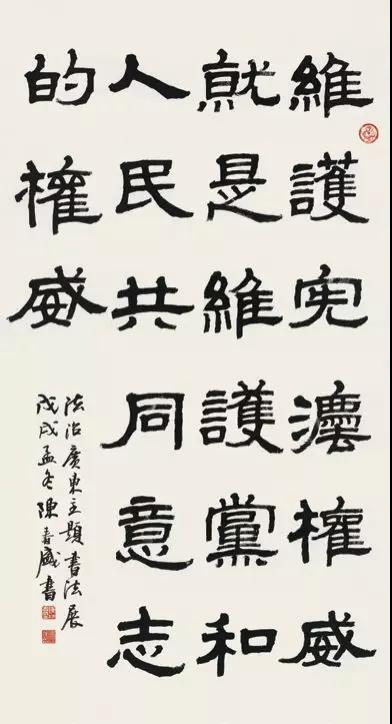 維護宪灋權威
就是維護黨和
人民共同意志
的權威
法治廣東主題書法展
戊戌孟冬陳春盛書